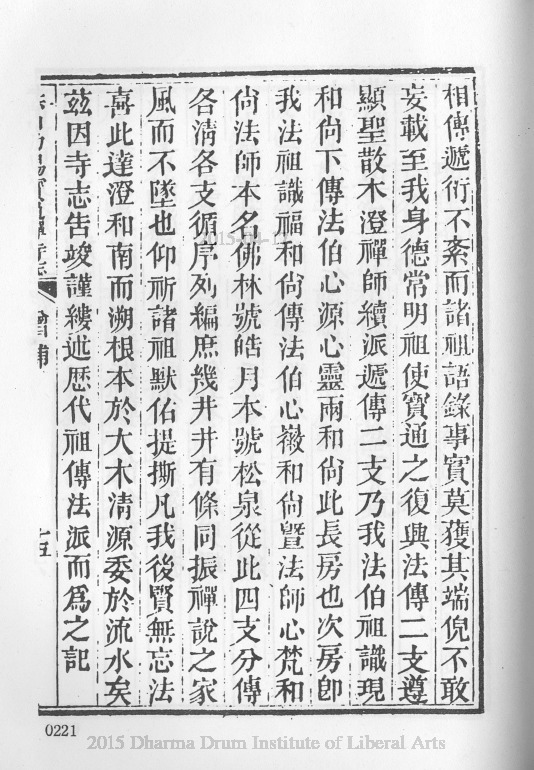 相傳遞衍不紊而諸祖語錄事實莫獲其端倪不敢
妄載至我身德常明祖使寶通之復興法傳二支遵
顯聖散木澄禪師續派遞傳二支乃我法伯祖識現
和尙下傳法伯心源心靈兩和尙此長房也次房卽
我法祖識福和尙傳法伯心徽和尙曁法師心梵和
尙法師本名佛林號皓月本號松泉從此四支分傳
各淸各支循序列編庶幾井井有條同振禪說之家
風而不墜也仰祈諸祖默佑提撕凡我後賢無忘法
喜此達澄和南而溯根本於大木清源委於流水矣
茲因寺志吿竣謹縷述歷代祖傳法派而爲之記
增補
七五
0221
2015 Dharma Drum Institute of Liberal Arts